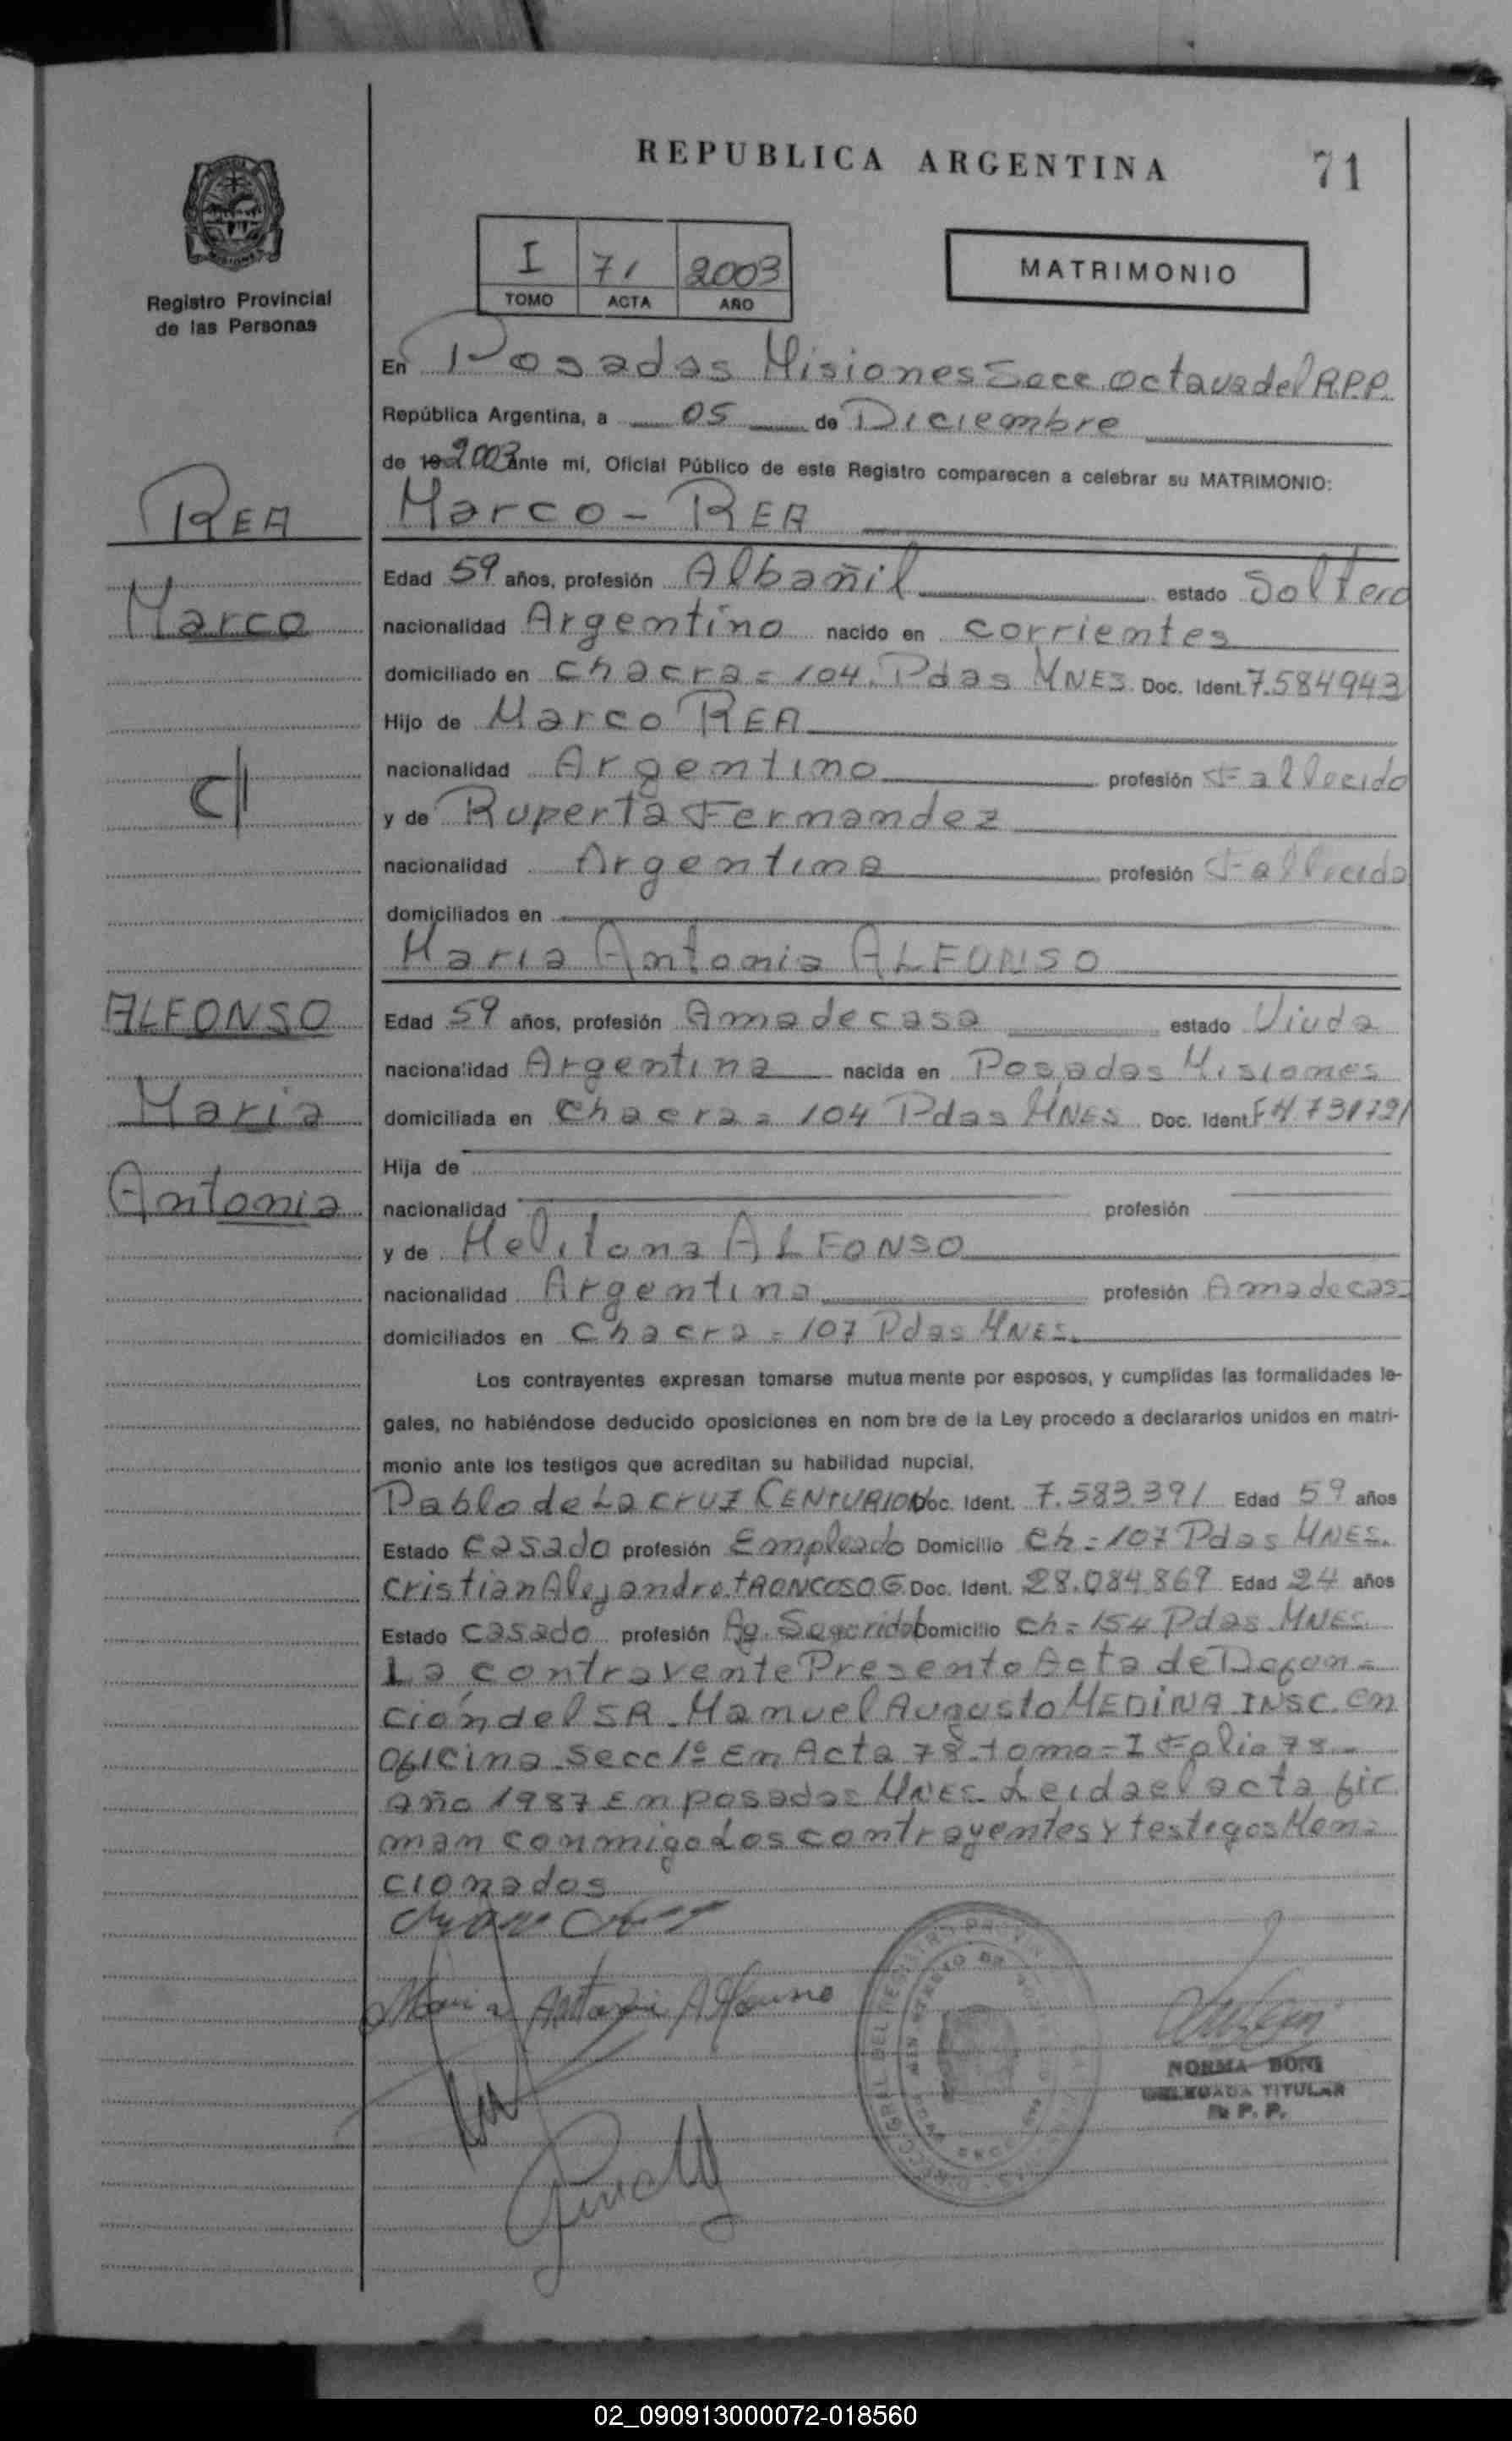 REPUBLICA ARGENTINA
71
Registro Provincial
de las Personas
I 71 2003
TOMO ACTA AÑO
MATRIMONIO
En Posadas Misiones Secc. Octava del R.P.P.
República Argentina, a 05 de Diciembre
de 19 2003 ante mí, Oficial Público de este Registro comparecen a celebrar su MATRIMONIO:
REA
Marco - REA
Edad 59 años, profesión Albañil estado Soltero
Marco
nacionalidad Argentino nacido en corrientes
domiciliado en chacra = 104. Pdas MNES. Doc. Ident. 7.584943
Hijo de Marco REA
nacionalidad Argentino profesión Fallecido
c/
y de Ruperta Fernandez
nacionalidad Argentina profesión Fallecida
domiciliados en
Maria Antonia ALFONSO
ALFONSO
Edad 59 años, profesión Ama de casa estado Viuda
nacionalidad Argentina nacida en Posadas Misiones
Maria
domiciliada en Chacra = 104 Pdas MNES. Doc. Ident. F4.731791
Hija de
Antonia
nacionalidad profesión
y de Melitona ALFONSO
nacionalidad Argentina profesión Ama de casa
domiciliados en Chacra = 107 Pdas MNES.
Los contrayentes expresan tomarse mutua mente por esposos, y cumplidas las formalidades le-
gales, no habiéndose deducido oposiciones en nom bre de la Ley procedo a declararlos unidos en matri-
monio ante los testigos que acreditan su habilidad nupcial.
Pablo de La cruz CENTURION Doc. Ident. 7.583.391 Edad 59 años
Estado Casado profesión Empleado Domicilio Ch = 107 Pdas MNES.
Cristian Alejandro TRONCOSO G. Doc. Ident. 28.084.869 Edad 24 años
Estado Casado profesión Ag. Seguridad Domicilio Ch = 154 Pdas. MNES.
La contrayente Presento Acta de Defun =
ción del SR. Manuel Augusto MEDINA INSC. en
oficina Secc 1º En Acta 78 tomo = I Folio 78
año 1987 En posadas MNES. Leida el acta fir
man conmigo Los contrayentes y testigos Men =
cionados
Maria Antonia Alfonso
NORMA BONI
DELEGADA TITULAR
R. P. P.
02_090913000072-018560